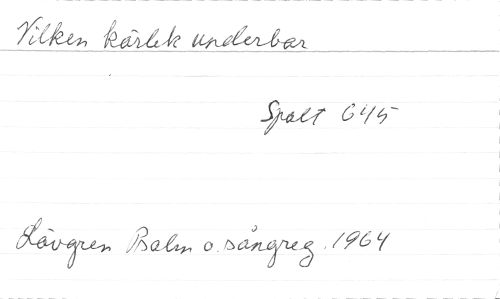 Vilken kärlek underbar
Spalt 645
Lövgren Psalm o. sångreg. 1964